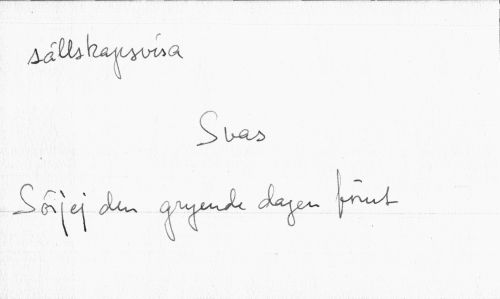 sällskapsvisa
Svas
Sörj ej den gryende dagen förut